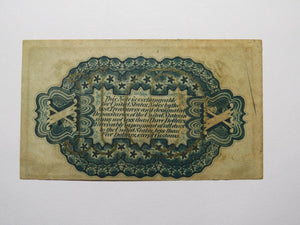 This Note is exchangeable
for United States Notes by the
Treasurers and designated
Depositaries of the United States in
sums not less than Three Dollars
Receivable in payment of all dues
to the United States less than
Five Dollars, except Customs.